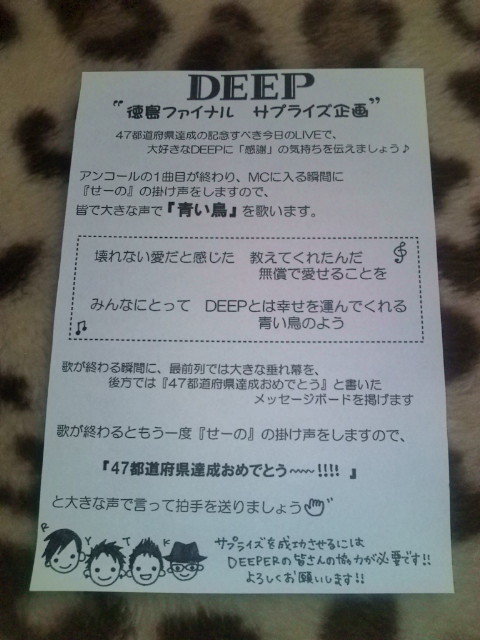 DEEP
“徳島ファイナル サプライズ企画”
47都道府県達成の記念すべき今日のLIVEで、
大好きなDEEPに「感謝」の気持ちを伝えましょう♪
アンコールの1曲目が終わり、MCに入る瞬間に
『せーの』の掛け声をしますので、
皆で大きな声で『青い鳥』を歌います。
壊れない愛だと感じた 教えてくれたんだ
無償で愛せることを
みんなにとって DEEPとは幸せを運んでくれる
青い鳥のよう
歌が終わる瞬間に、最前列では大きな垂れ幕を、
後方では『47都道府県達成おめでとう』と書いた
メッセージボードを掲げます
歌が終わるともう一度『せーの』の掛け声をしますので、
『47都道府県達成おめでとう~~~!!!! 』
と大きな声で言って拍手を送りましょう
R Y T K
サプライズを成功させるには
DEEPERの皆さんの協力が必要です!!
よろしくお願いします!!